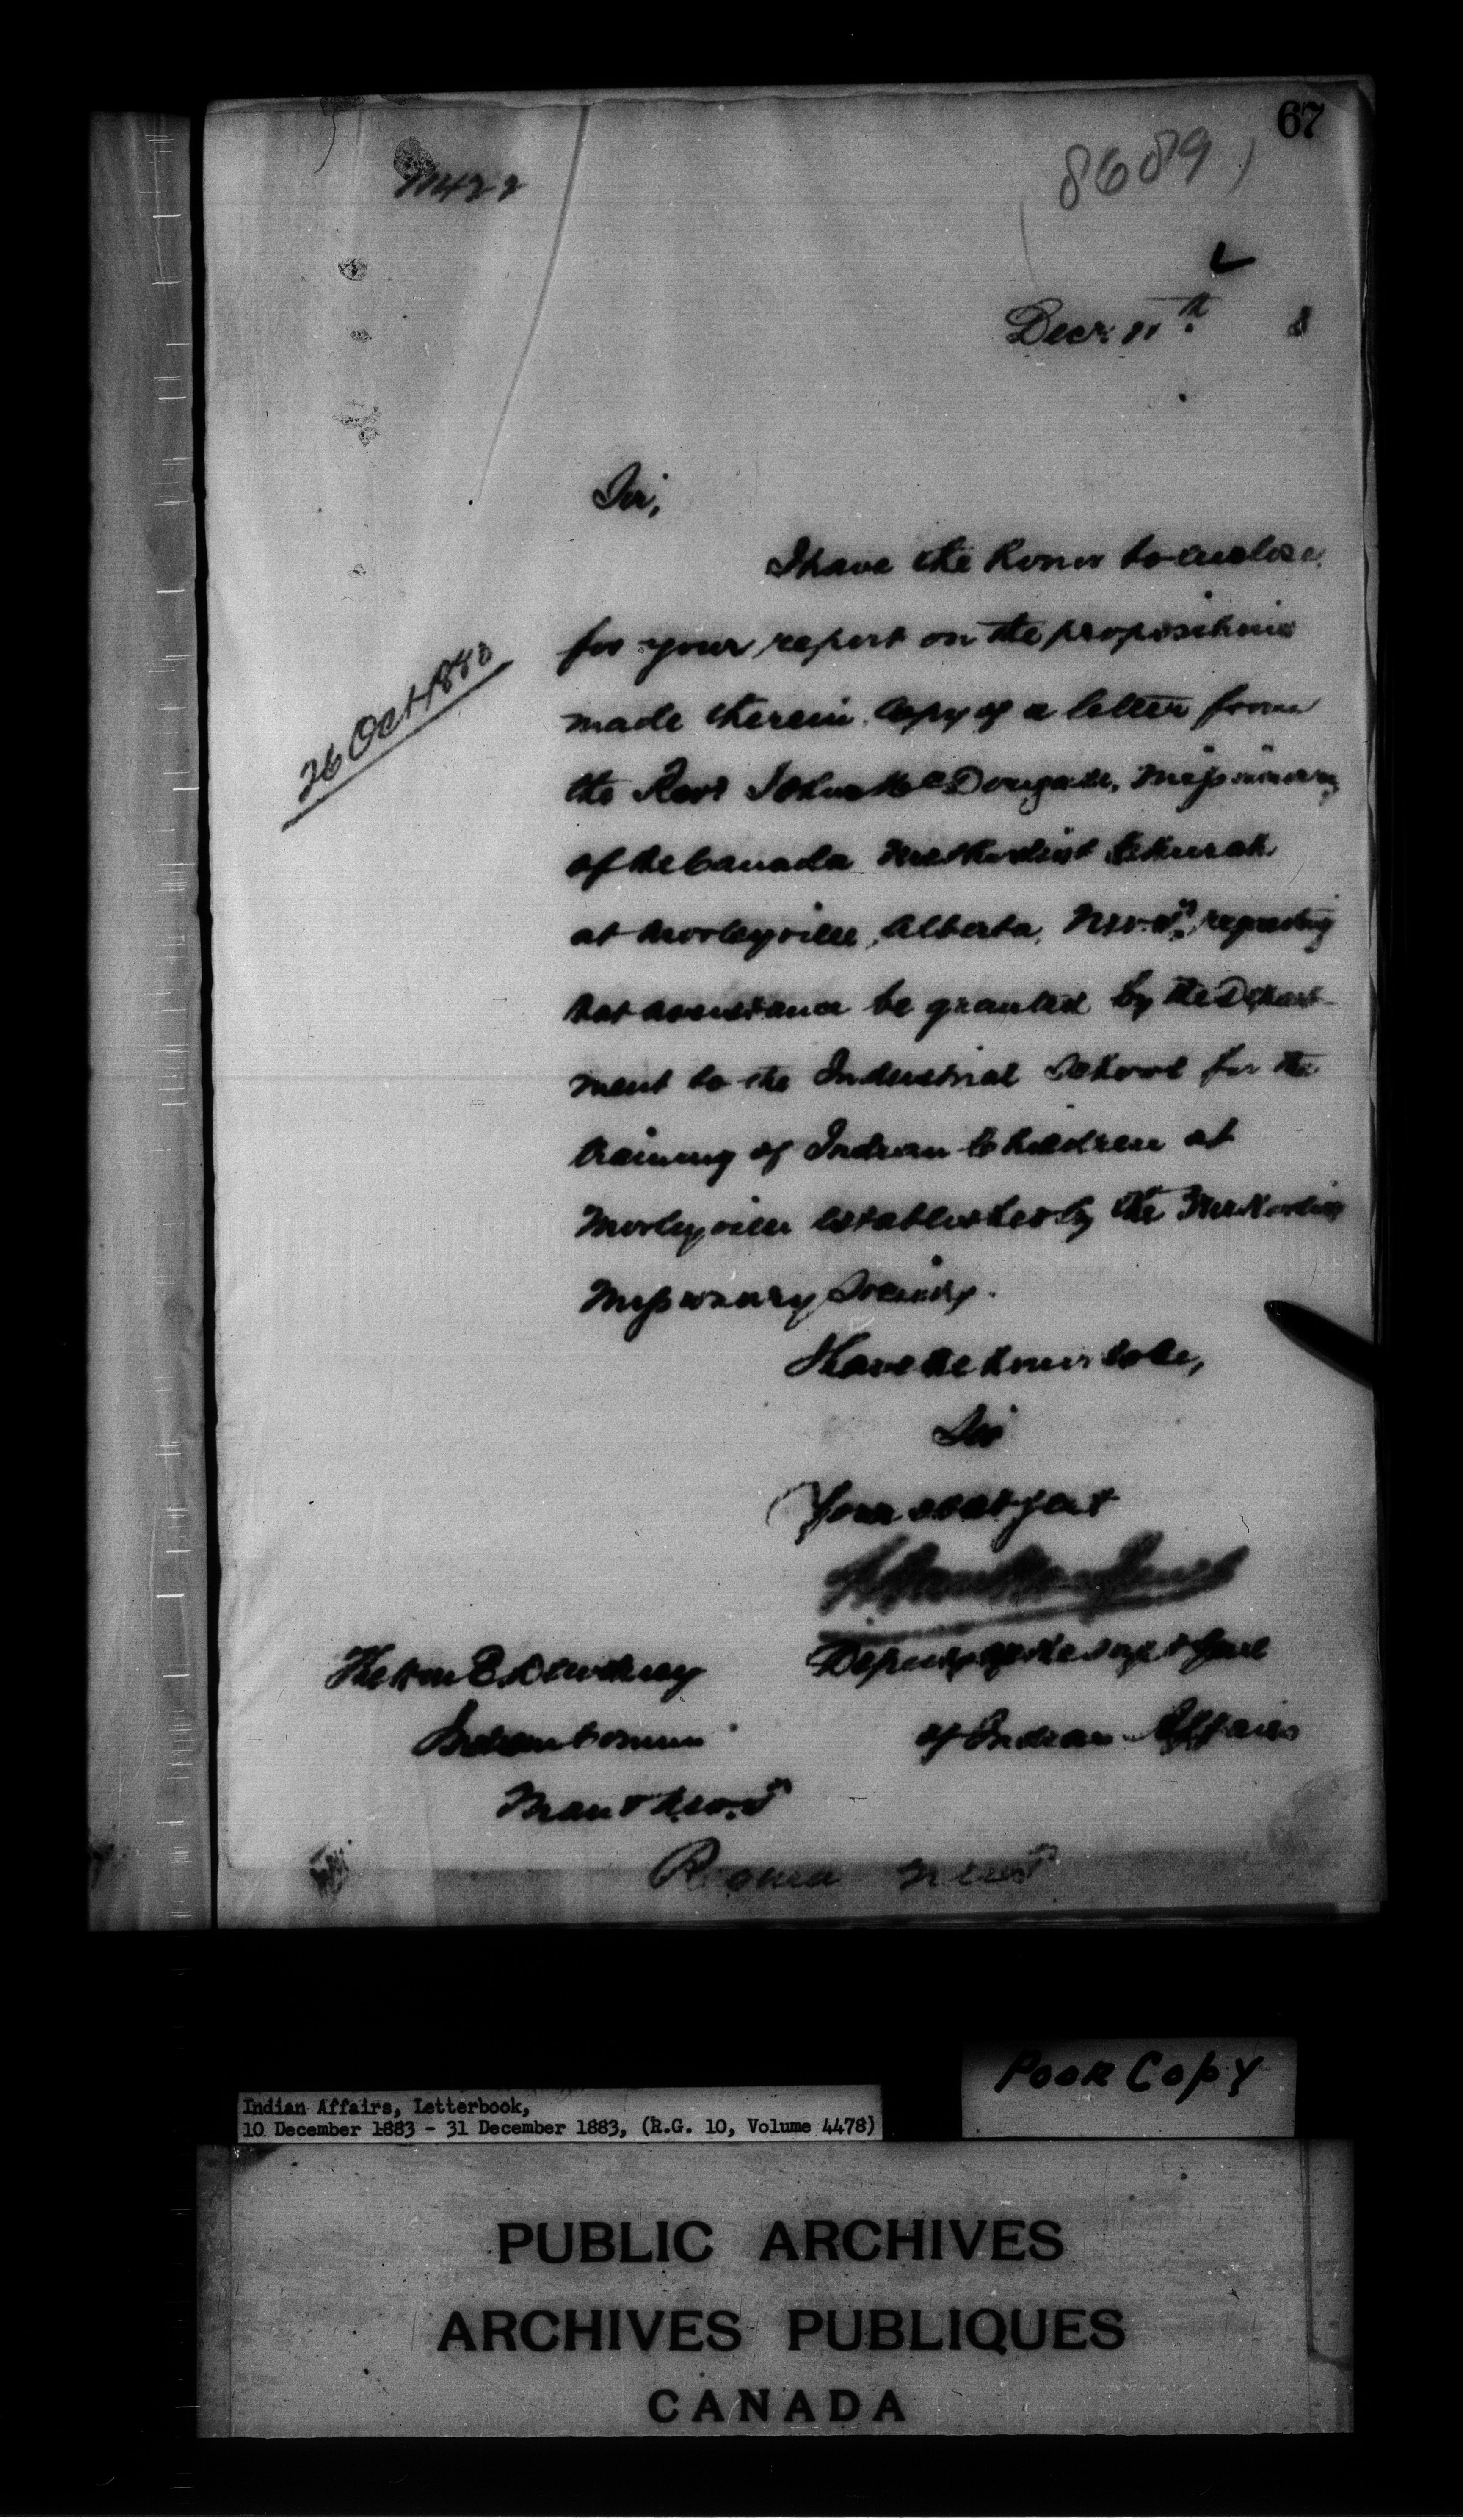 67
8689
Decr. 11th 8
Sir,
I have the honor to enclose
for your report on the propositions
26 Oct 1883
made therein copy of a letter from
the Revd John McDougall, Missionary
of the Canada Methodist Church
at Morleyville, Alberta, N.W.T., requesting
that assistance be granted by the Depart-
ment to the Industrial School for the
training of Indian Children at
Morleyville established by the Methodist
Missionary Society.
I have the honor to be,
Sir
Your obdt Servt
Deputy of the Supt Genl
of Indian Affairs
The Hon E. Dewdney
Indian Commr
Man & N.W.T
Regina N.W.T
Poor Copy
Indian Affairs, Letterbook,
10 December 1883 - 31 December 1883, (R.G. 10, Volume 4478)
PUBLIC ARCHIVES
ARCHIVES PUBLIQUES
CANADA